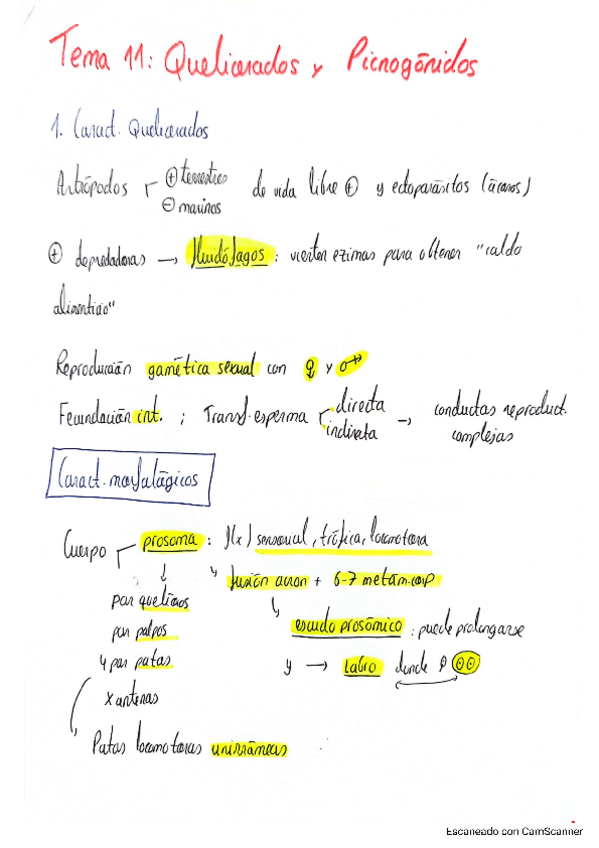 Tema 11: Quelicerados y Picnogónidos
1. Caract. Quelicerados
Artrópodos ⊕ terrestres de vida libre ⊕ y ectoparásitos (ácaros)
⊖ marinos
⊕ depredadores → fluidófagos: vierten ezimas para obtener "caldo
alimenticio"
Reproducción gamética sexual con ♀ y ♂
Fecundación int. ; Transf. esperma directa → conductas reproduct.
indirecta complejas
Caract. morfológicos
Cuerpo prosoma: f(x) sensorial, trófica, locomotora
↓ ↳ fusión acron + 6-7 metám. corp
par quelíceros
↳ escudo prosómico: puede prolongarse
par palpos
4 par patas y → labro donde
x antenas
Patas locomotoras unirrámeas
Escaneado con CamScanner